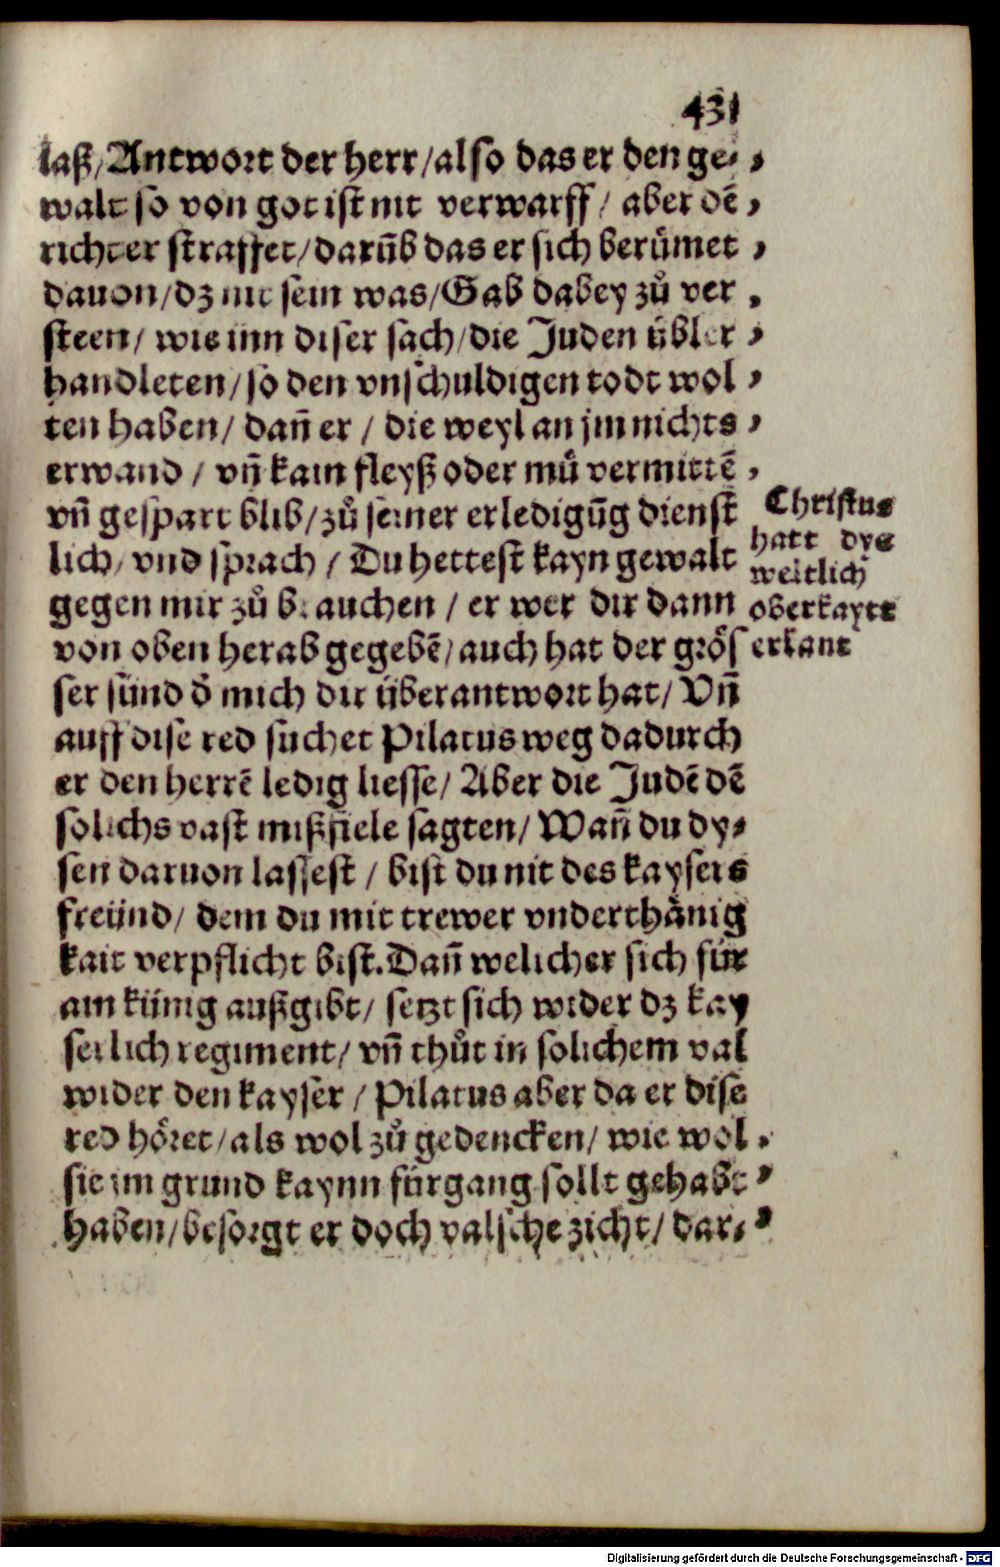 431
laß/Antwort der herr/also das er den ge⸗
walt so von got ist nit verwarff/ aber dē
richter straffet/darūb das er sich berůmet
dauon/dz nit sein was/Gab dabey zů ver
steen/ wie inn diser sach/die Juden übler
handleten/so den vnschuldigen todt wol
ten haben/ dañ er / die weyl an jm nichts
erwand / vñ kain fleyß oder mů vermittē
vñ gespart blib/zů seiner erledigūg dienst
lich/ vnd sprach / Du hettest kayn gewalt
gegen mir zů brauchen / er wer dir dann
von oben herab gegebē/auch hat der grös
ser sünd d̄ mich dir überantwort hat/ Vñ
auff dise red suchet Pilatus weg dadurch
er den herrē ledig liesse/ Aber die Judē dē
solichs vast mißfiele sagten/ Wañ du dy⸗
sen daruon lassest / bist du nit des kaysers
freünd/ dem du mit trewer vnderthänig
kait verpflicht bist. Dañ welicher sich für
ain künig außgibt/ setzt sich wider dz kay
serlich regiment/ vñ thůt in solichem val
wider den kayser / Pilatus aber da er dise
red höret/als wol zů gedencken/ wie wol
sie im grund kaynn fürgang sollt gehabt
haben/besorgt er doch valsche zicht/ dar⸗
Christus
hatt dye
weltlich
oberkaytt
erkant
Digitalisierung gefördert durch die Deutsche Forschungsgemeinschaft - DFG